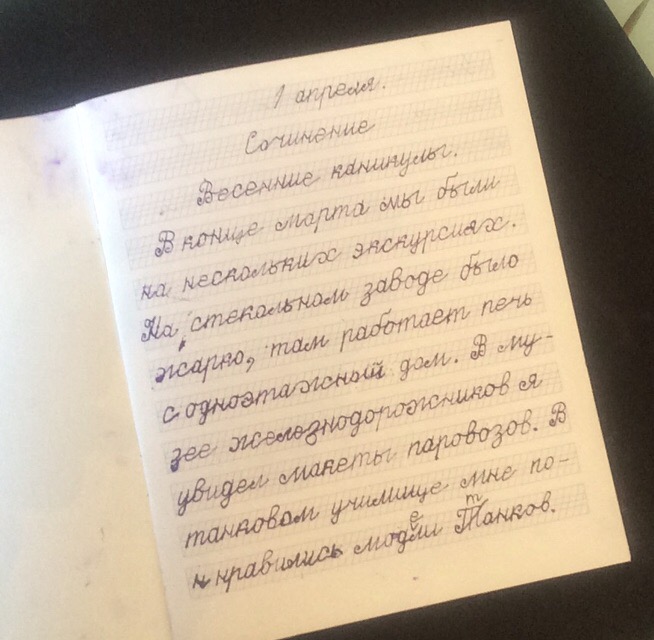 1 апреля.
Сочинение
Весенние каникулы.
В конце марта мы были
на нескольких экскурсиях.
На стекольном заводе было
жарко, там работает печь
с одноэтажный дом. В му-
зее железнодорожников я
увидел макеты паровозов. В
танковом училище мне по-
нравились модели танков.